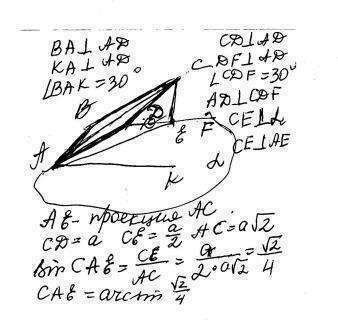 BA⊥AD
KA⊥AD
∠BAK=30°
CD⊥AD
DF⊥AD
∠CDF=30°
AD⊥CDF
CE⊥α
CE⊥AE
C
B
D
E
F
A
K
α
AE - проекция AC
CD=a CE=a/2 AC=a√2
Sin CAE=CE/AC=a/2·a√2=√2/4
CAE=arcsin √2/4